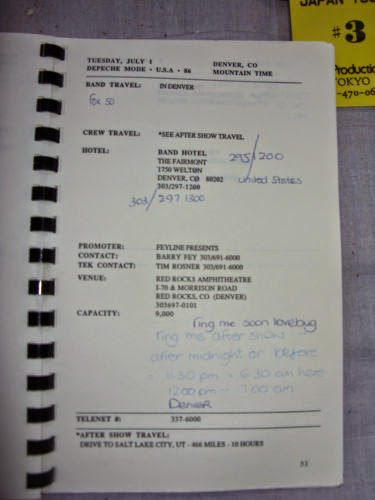 JAPAN TOU
#3
Productio
TOKYO
-470-06
TUESDAY, JULY 1 DENVER, CO
DEPECHE MODE • U.S.A • 86 MOUNTAIN TIME
BAND TRAVEL: IN DENVER
fox so
CREW TRAVEL: *SEE AFTER SHOW TRAVEL
HOTEL: BAND HOTEL
THE FAIRMONT 295/1200
1750 WELTON
DENVER, CO 80202 United States
303/297-1200
303/297 1300
PROMOTER: FEYLINE PRESENTS
CONTACT: BARRY FEY 303/691-6000
TEK CONTACT: TIM ROSNER 303/691-6000
VENUE: RED ROCKS AMPHITHEATRE
I-70 & MORRISON ROAD
RED ROCKS, CO (DENVER)
303697-0101
CAPACITY: 9,000
ring me soon lovebug
ring me after show
after midnight or before
11.30 pm - 6.30 am here
12.00 pm - 7.00 am
Denver
TELENET #: 337-6000
*AFTER SHOW TRAVEL:
DRIVE TO SALT LAKE CITY, UT - 466 MILES - 10 HOURS
31